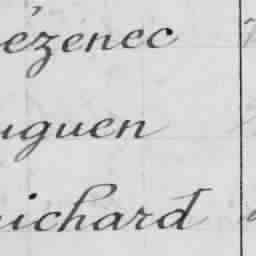 ézenec
uguen
uichard